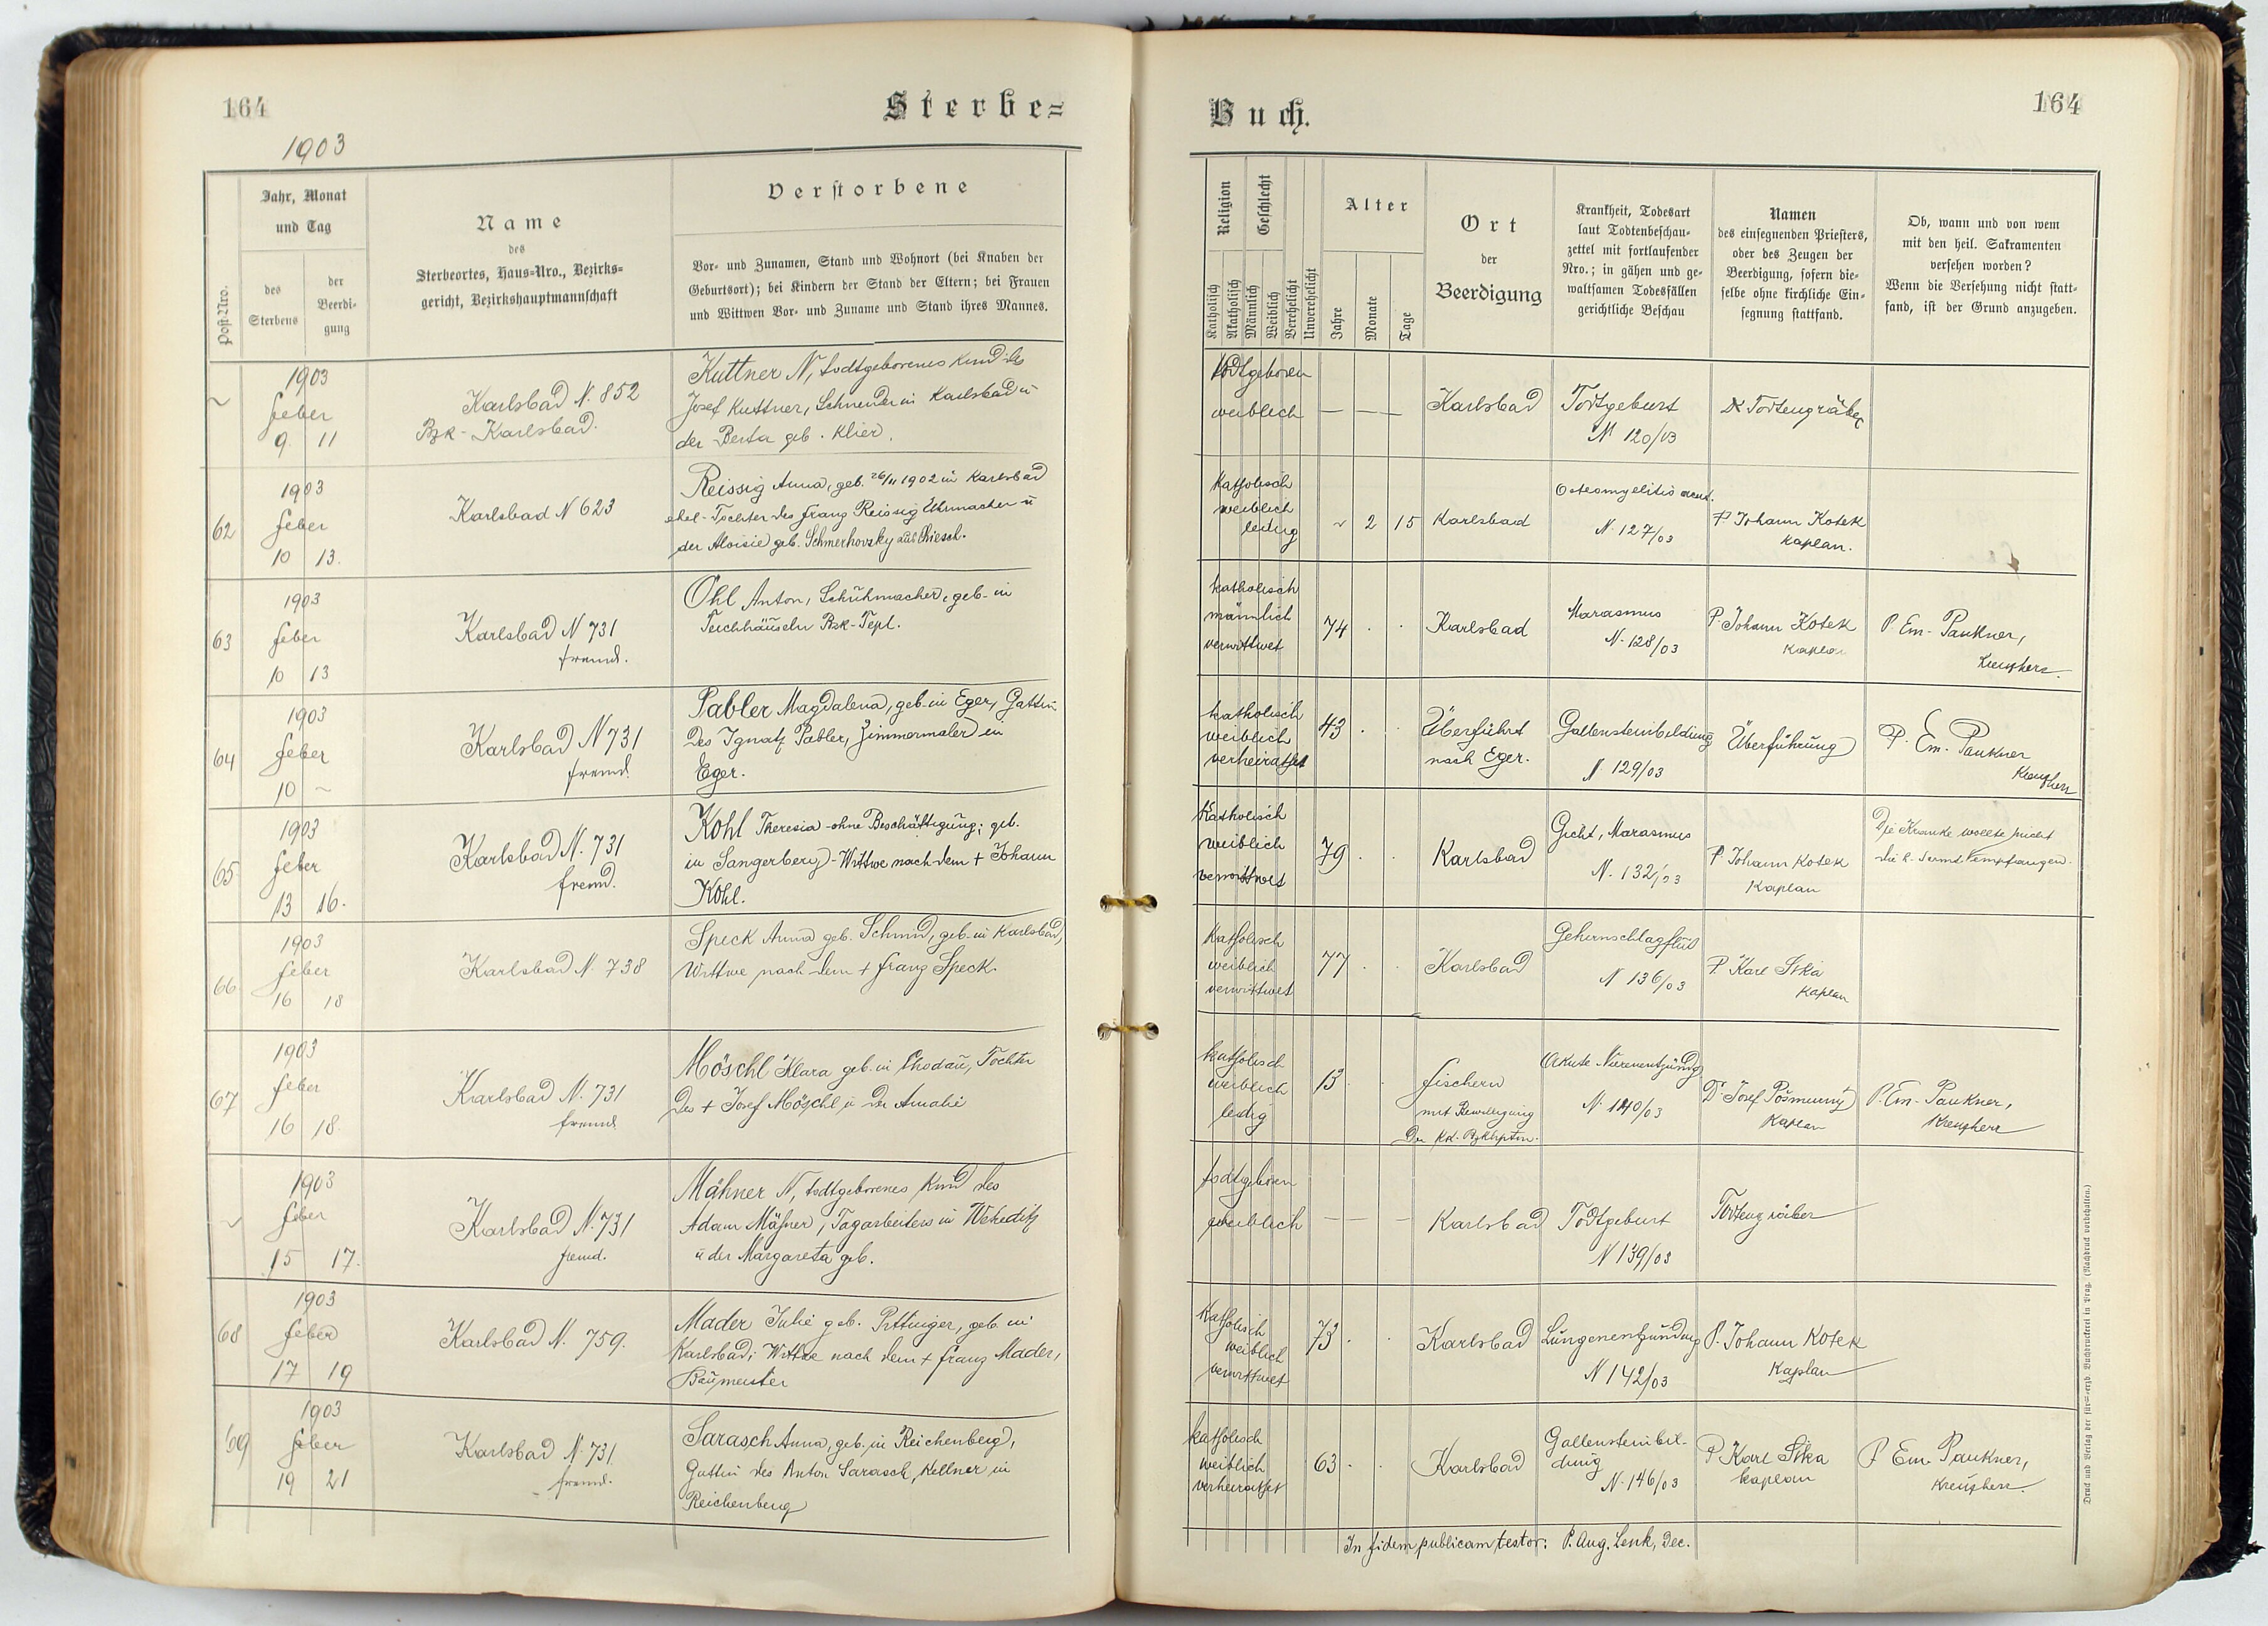 164
Sterbe=
1903
Post-Nro.
Jahr, Monat
und Tag
des
Sterbens
der
Beerdi-
gung
Name
des
Sterbeortes, Haus=Nro., Bezirks=
gericht, Bezirkshauptmannschaft
Verstorbene
Vor- und Zunamen, Stand und Wohnort (bei Knaben der
Geburtsort); bei Kindern der Stand der Eltern; bei Frauen
und Wittwen Vor- und Zuname und Stand ihres Mannes.
1903
feber
9. 11
Karlsbad N. 852
Bzk- Karlsbad.
Kuttner N, todtgeborenes Kind des
Josef Kuttner, Schneider in Karlsbad u
der Berta geb. Klier.
62
1903
feber
10 13.
Karlsbad N 623
Reissig Anna, geb. 26/11 1902 in Karlsbad
ehel- Tochter des franz Reissig Uhrmacher u
der Aloisie geb. Schmerhovsky aus Chiesch.
63
1903
feber
10 13
Karlsbad N 731
fremd.
Öhl Anton, Schuhmacher, geb- in
Teichhäuseln Bzk- Tepl.
64
1903
feber
10 ~
Karlsbad N 731
fremd
Pabler Magdalena, geb- in Eger, Gattin
des Ignatz Pabler, Zimmermaler in
Eger.
65
1903
feber
13 16.
Karlsbad N. 731
fremd.
Kohl Theresia - ohne Beschäftigung; geb.
in Sangerberg - Wittwe nach dem + Johann
Kohl.
66
1903
feber
16 18
Karlsbad N. 738
Speck Anna geb. Schmid, geb- in Karlsbad,
Wittwe nach dem + franz Speck.
67
1903
feber
16 18
Karlsbad N. 731
fremd
Möschl Klara geb. in Chodau, Tochter
des + Josef Möschl u der Amalie
1903
feber
15 17.
Karlsbad N. 731
fremd.
Mähner N, todtgeborenes Kind des
Adam Mähner, Tagarbeiters in Weheditz
u der Margareta geb.
68
1903
feber
17 19
Karlsbad N. 759.
Mader Julie geb. Pittinger, geb. in
Karlsbad; Wittwe nach dem + franz Mader,
Baumeister
69
1903
feber
19 21
Karlsbad N. 731
fremd.
Sarasch Anna, geb. in Reichenberg,
Gattin des Anton Sarasch, Kellner in
Reichenberg
Buch.
164
Religion
Geschlecht
Katholisch
Akatholisch
Männlich
Weiblich
Verehelicht
Unverehelicht
Alter
Jahre
Monate
Tage
Ort
der
Beerdigung
Krankheit, Todesart
laut Todtenbeschau-
zettel mit fortlaufender
Nro.; in gähen und ge-
waltsamen Todesfällen
gerichtliche Beschau
Namen
des einsegnenden Priesters,
oder des Zeugen der
Beerdigung, sofern die-
selbe ohne kirchliche Ein-
segnung stattfand.
Ob, wann und von wem
mit den heil. Sakramenten
versehen worden?
Wenn die Versehung nicht statt-
fand, ist der Grund anzugeben.
Todtgeboren
weiblich
— — —
Karlsbad
Todtgeburt
N 120/03
Todtengräber
Katholisch
weiblich
ledig
~ 2 15
Karlsbad
Osteomyelitis acut.
N. 127/03
P. Johann Kotek
Kaplan.
katholisch
männlich
verwittwet
74 . .
Karlsbad
Marasmus
N- 128/03
P. Johann Kotek
Kaplan
P. Em- Paukner,
Kreuzherr.
katholisch
weiblich
verheirathet
43 . .
Überführt
nach Eger.
Gallensteinbildung
N 129/03
Überführung
P. Em. Paukner
Kreuzherr
Katholisch
weiblich
verwittwet
79 . .
Karlsbad
Gicht, Marasmus
N. 132/03
P. Johann Kotek
Kaplan
Die Kranke wollte nicht
empfangen.
Katholisch
weiblich
verwittwet
77 . .
Karlsbad
Gehirnschlagfluß
N 136/03
P. Karl Sika
Kaplan
katholisch
weiblich
ledig
13 . .
fischern
mit Bewilligung
der kk. Bzkhptm.
Akute Nierenentzündg
N. 140/03
Dr. Josef Pošmurný
Kaplan
P. Em- Paukner,
Kreuzherr
todtgeboren
weiblich
— — —
Karlsbad
Todtgeburt
N 139/03
Todtengräber
Katholisch
weiblich
verwittwet
73 . .
Karlsbad
Lungenentzündung
N 142/03
P. Johann Kotek
Kaplan
katholisch
weiblich
verheirathet
63 . .
Karlsbad
Gallensteinbil-
dung
N. 146/03
P Karl Sika
Kaplan
P Em- Paukner,
Kreuzherr.
In fidem publicam testor: P. Aug. Lenk, Dec.
Druck und Verlag der fürst=erzb. Buchdruckerei in Prag. (Nachdruck vorbehalten.)